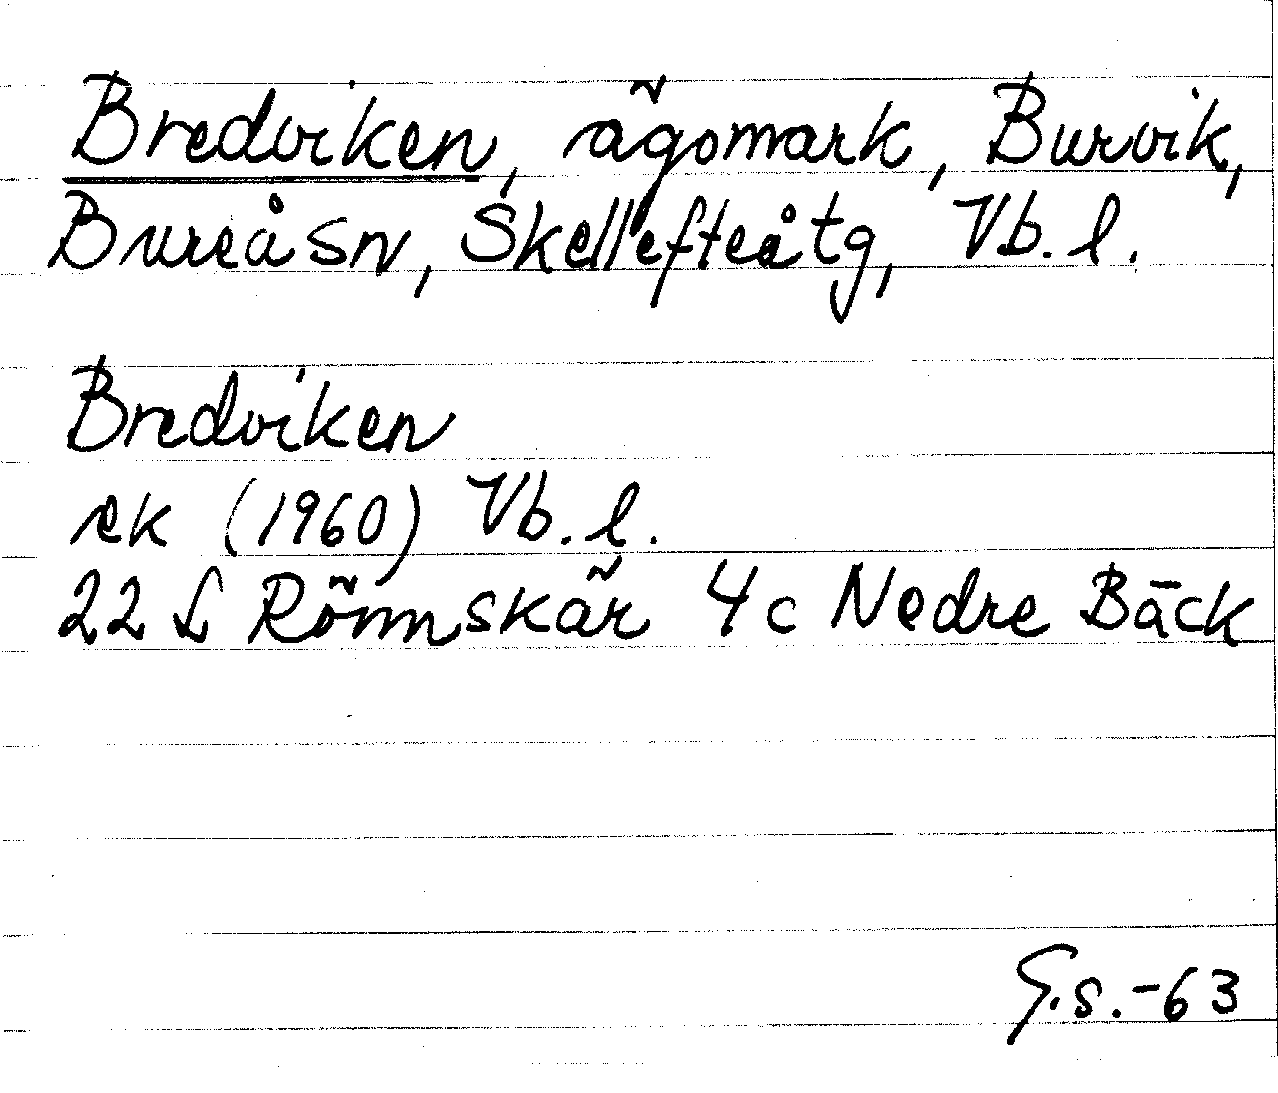 Bredviken, ägomark, Burvik,
Bureå sn, Skellefteå tg, Vb. l.
Bredviken
ek (1960) Vb. l.
22 L Rönnskär 4c Nedre Bäck
G.s.-63